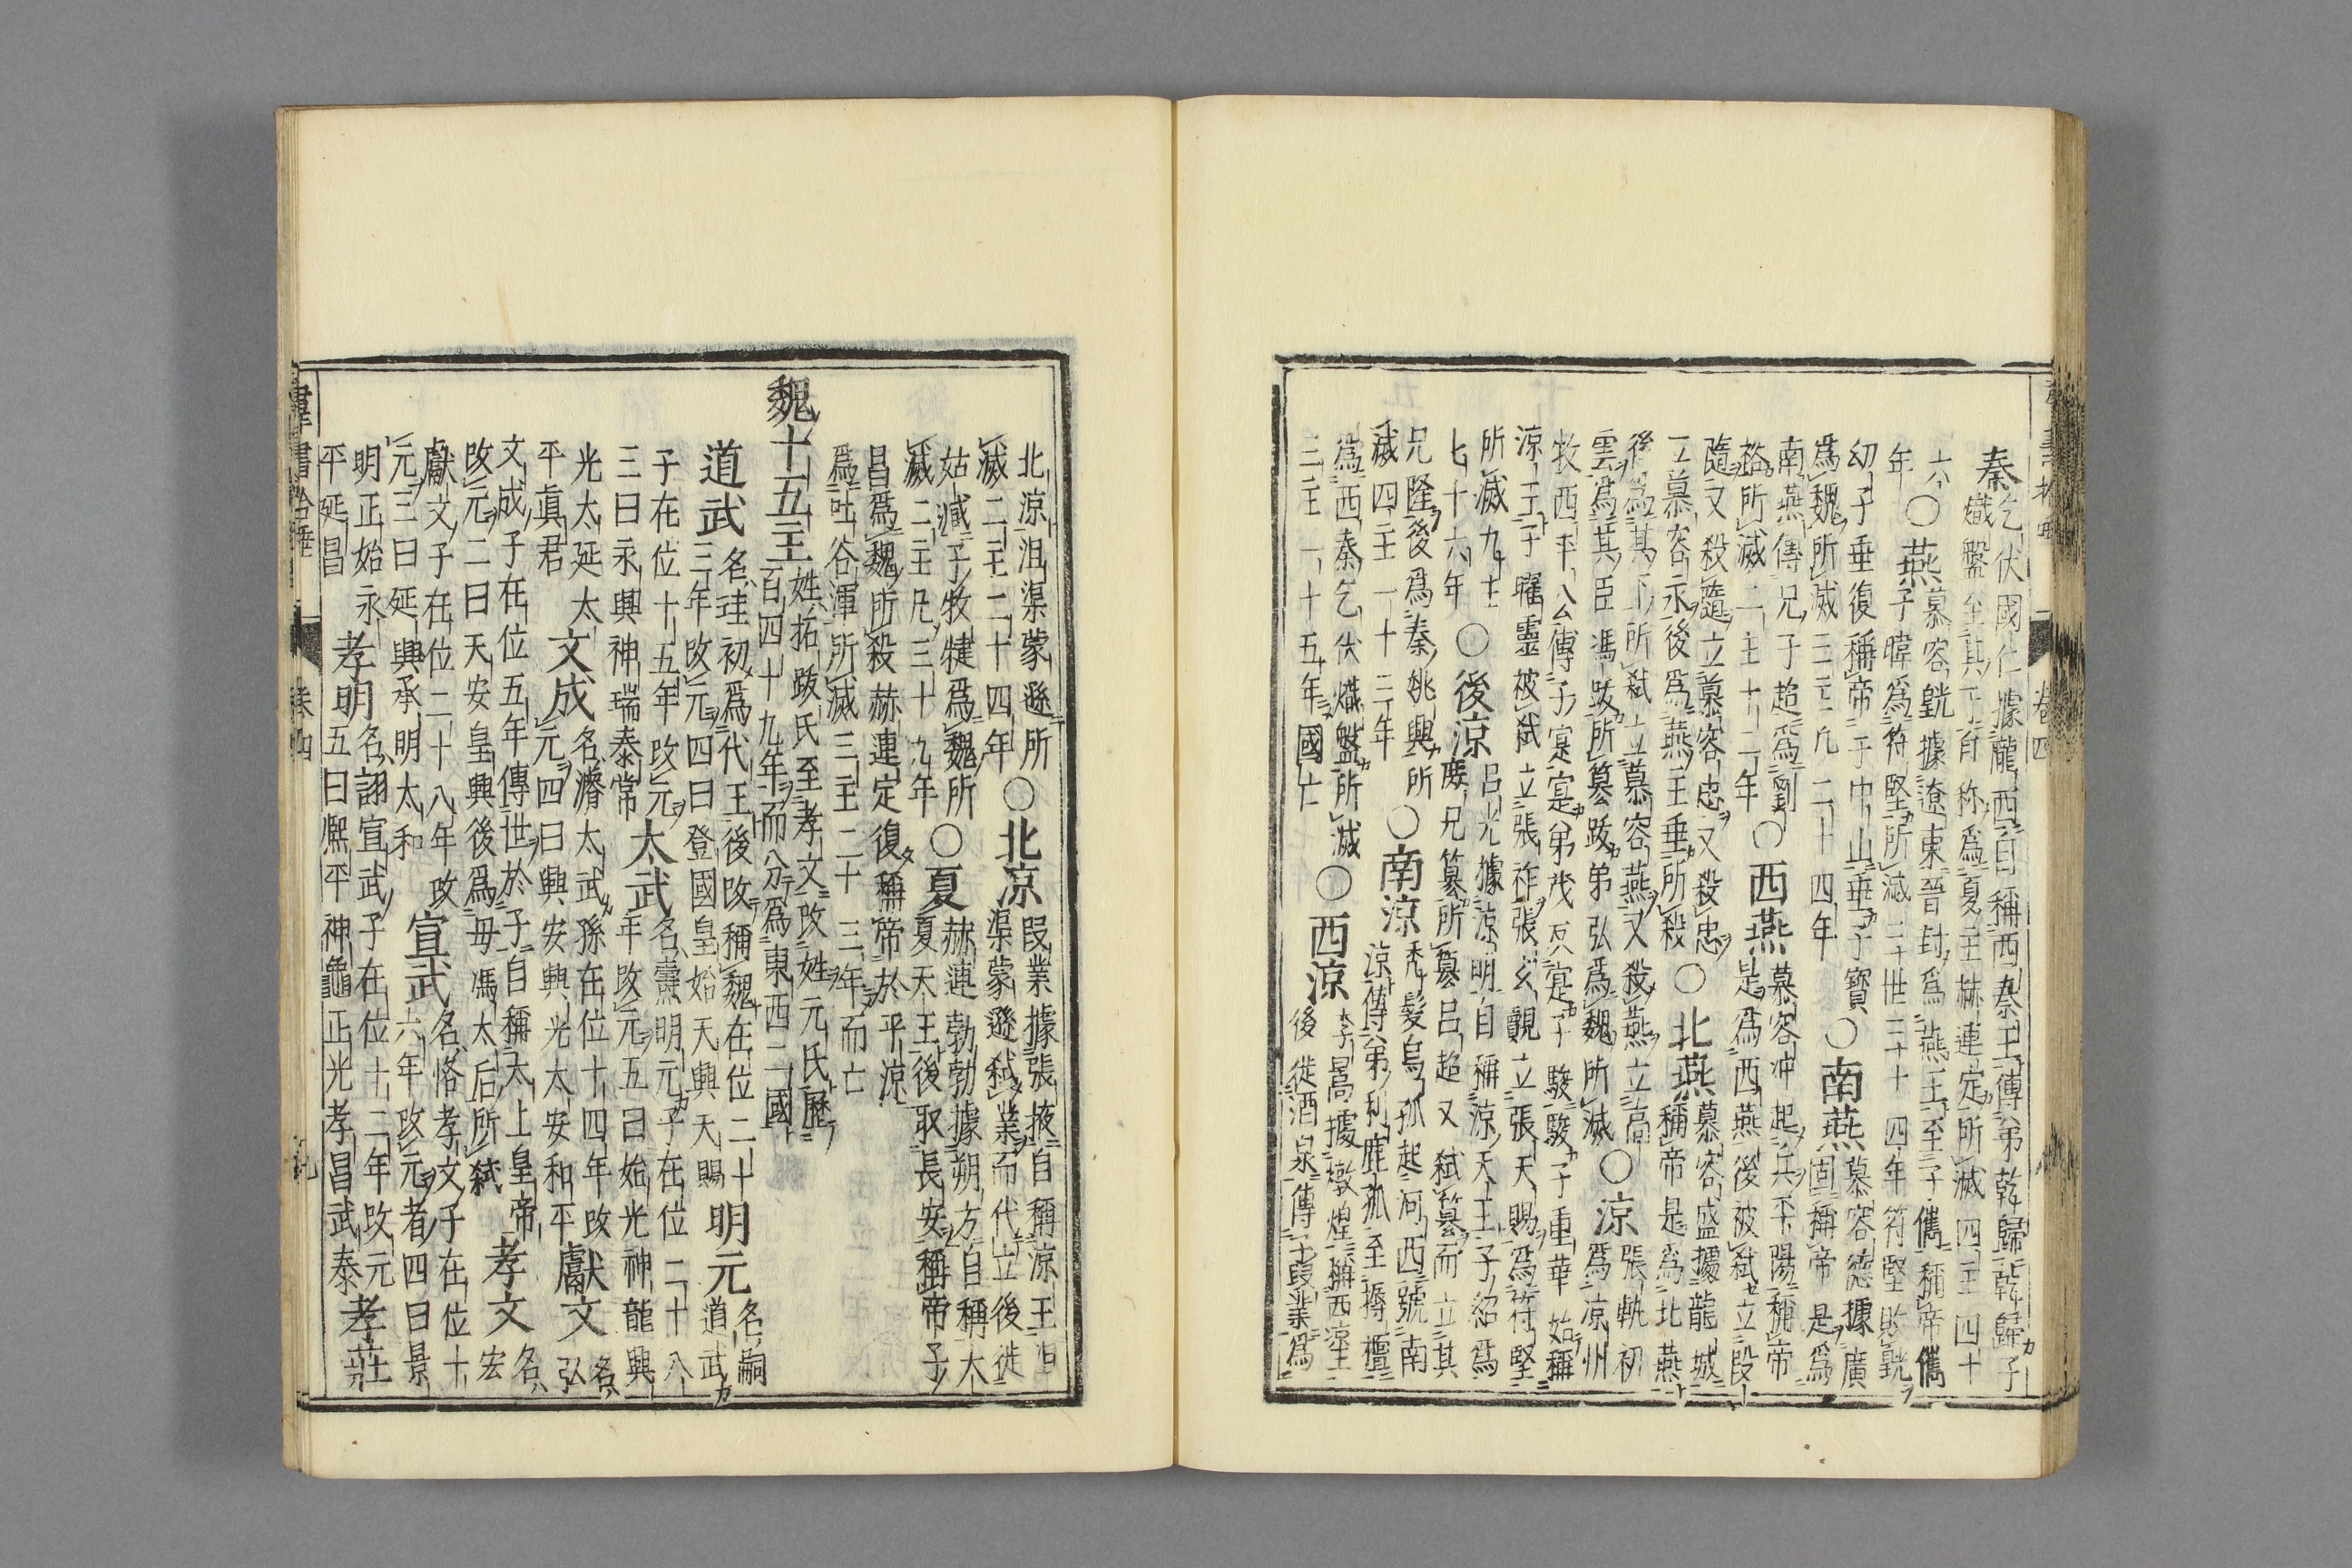 秦乞伏國仁據隴西自稱西秦王傳弟乾歸乾歸子
熾盤至其子百称爲夏主赫連定所滅四主四十
六年○燕慕容皝據遼東晉封爲燕王至子儁稱帝儁
子暐爲符堅所滅三世三十四年符堅敗皝
幼子垂復稱帝于中山垂子寶
爲魏所滅三主凡二十四年○南燕慕容德據廣
固稱帝是爲
南燕傳兄子超爲劉
裕所滅二主十二年○西燕慕容冲起兵平陽稱帝
是爲西燕後被弑立段
隨又殺隨立慕容忠又殺忠
立慕容永後爲燕主垂所殺○北燕慕容盛據龍城
稱帝是爲北燕
後爲其下所弑立慕容燕又殺燕立高
雲爲其臣馮跋所簒跋弟弘爲魏所滅○涼張軌初
爲凉州
牧西平公傳子寔寔弟茂及寔子駿駿子重華始稱
涼王子曜靈被弑立張祚張玄靚立張天賜爲符堅
所滅九主
七十六年○後涼呂光據涼明自稱涼天王子紹爲
庶兄簒所簒呂超又弑簒而立其
兄隆後爲秦姚興所
滅四主一十三年○南涼秃髮烏孤起河西號南
涼傳弟利鹿孤至褥檀
爲西秦乞伏熾盤所滅
三主一十五年國亡○西涼李暠據燉煌稱西涼王
後徙酒泉傳子段業爲
北涼沮渠蒙遜所
滅二主二十四年○北凉段業據張掖自稱涼王沮
渠蒙遜弑業而代立後徙
姑臧子牧犍爲魏所
滅二主凡三十九年○夏赫連勃勃據朔方自稱大
夏天王後取長安稱帝子
昌爲魏所殺赫連定復稱帝於平凉
爲吐谷渾所滅三主二十三年而亡
魏十五王姓拓跋氏至孝文改姓元氏歷
百四十九年而分爲東西二國
道武名珪初爲代王後改稱魏在位二十
三年改元四曰登國皇始天興天賜明元名嗣
道武
子在位十五年改元
三曰永興神瑞泰常太武名燾明元子在位二十八
年改元五曰始光神龍興
光太延太
平真君文成名濬太武孫在位十四年改
元四曰興安興光太安和平獻文名
弘
文成子在位五年傳世於子自稱太上皇帝
改元二曰天安皇興後爲毋馮太后所弑孝文名
宏
獻文子在位二十八年改
元三曰延興承明太和宣武名恪孝文子在位十
六年改元者四曰景
明正始永
平延昌孝明名詡宣武子在位十二年改元
五曰熙平神龜正光孝昌武泰孝莊